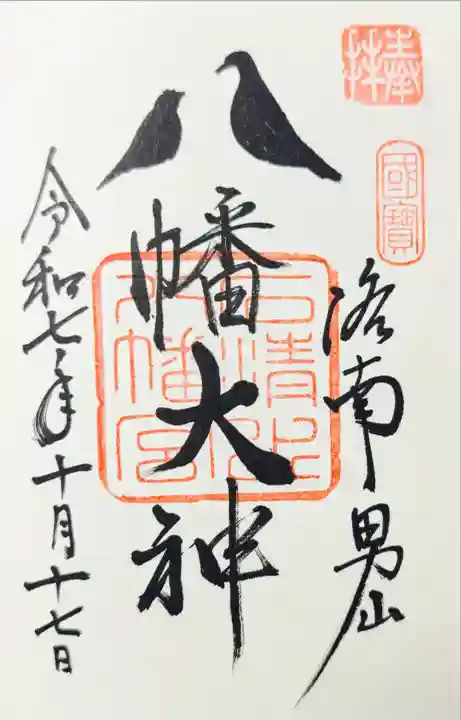 奉拝
國寶
洛南男山
八幡大神
石清水八幡宮
令和七年十月十七日